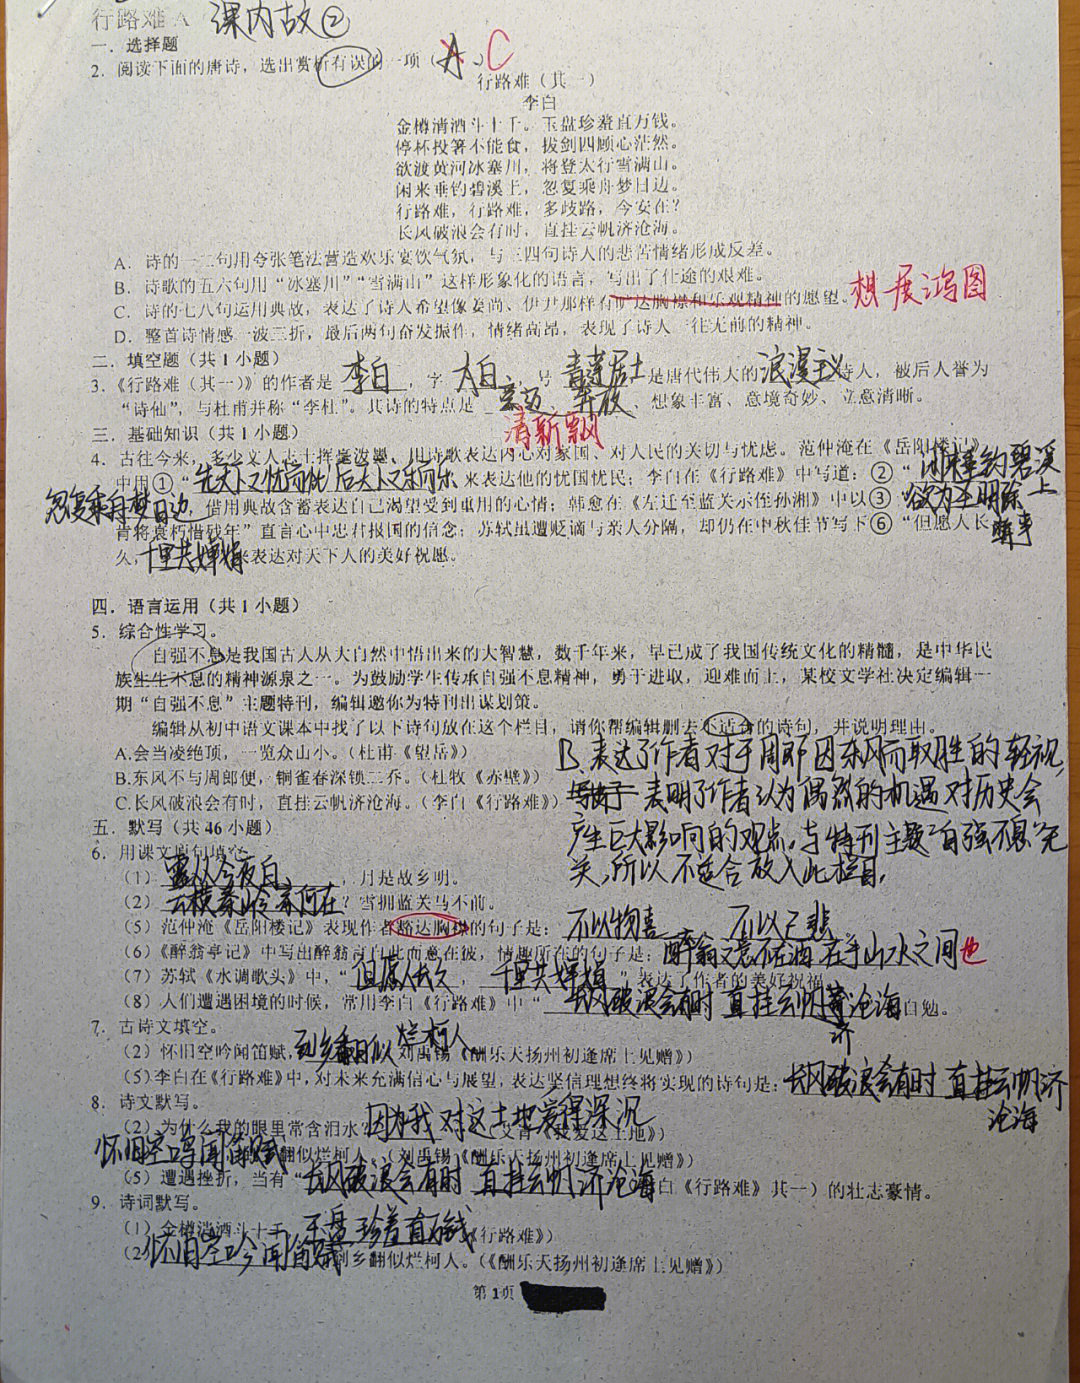 行路难A 课内古②
一．选择题
2．阅读下面的唐诗，选出赏析有误的一项（A）C
行路难（其一）
李白
金樽清酒斗十千。玉盘珍羞直万钱。
停杯投箸不能食，拔剑四顾心茫然。
欲渡黄河冰塞川，将登太行雪满山。
闲来垂钓碧溪上，忽复乘舟梦日边。
行路难，行路难，多歧路，今安在？
长风破浪会有时，直挂云帆济沧海。
A．诗的一二句用夸张笔法营造欢乐宴饮气氛，与三四句诗人的悲苦情绪形成反差。
B．诗歌的五六句用“冰塞川”“雪满山”这样形象化的语言，写出了仕途的艰难。
C．诗的七八句运用典故，表达了诗人希望像姜尚、伊尹那样有旷达胸襟和乐观精神的愿望。想展鸿图
D．整首诗情感一波三折，最后两句奋发振作，情绪高昂，表现了诗人一往无前的精神。
二．填空题（共1小题）
3．《行路难（其一）》的作者是 李白，字 太白，号 青莲居士 是唐代伟大的 浪漫主义 诗人，被后人誉为
“诗仙”，与杜甫并称“李杜”。其诗的特点是 豪迈、奔放、想象丰富、意境奇妙、立意清晰。
清新飘
三．基础知识（共1小题）
4．古往今来，多少文人志士挥毫泼墨，用诗歌表达内心对家国、对人民的关切与忧虑。范仲淹在《岳阳楼记》
中用①“先天下之忧而忧 后天下之乐而乐 来表达他的忧国忧民；李白在《行路难》中写道：②“闲来垂钓碧溪上
忽复乘舟梦日边 借用典故含蓄表达自己渴望受到重用的心情；韩愈在《左迁至蓝关示侄孙湘》中以③“欲为圣明除弊事
肯将衰朽惜残年”直言心中忠君报国的信念；苏轼虽遭贬谪与亲人分隔，却仍在中秋佳节写下⑥“但愿人长
久，千里共婵娟 来表达对天下人的美好祝愿。
四．语言运用（共1小题）
5．综合性学习。
自强不息是我国古人从大自然中悟出来的大智慧，数千年来，早已成了我国传统文化的精髓，是中华民
族生生不息的精神源泉之一。为鼓励学生传承自强不息精神，勇于进取，迎难而上，某校文学社决定编辑一
期“自强不息”主题特刊，编辑邀你为特刊出谋划策。
编辑从初中语文课本中找了以下诗句放在这个栏目，请你帮编辑删去不适合的诗句，并说明理由。
A.会当凌绝顶，一览众山小。（杜甫《望岳》）
B.东风不与周郎便，铜雀春深锁二乔。（杜牧《赤壁》）
C.长风破浪会有时，直挂云帆济沧海。（李白《行路难》）
B．表达了作者对于周郎因东风而取胜的轻视，
表明了作者认为偶然的机遇对历史会
产生巨大影响的观点，与特刊主题“自强不息”无
关，所以不适合放入此栏目．
五．默写（共46小题）
6．用课文原句填空
（1）露从今夜白，月是故乡明。
（2）云横秦岭家何在？雪拥蓝关马不前。
（5）范仲淹《岳阳楼记》表现作者豁达胸襟的句子是：不以物喜 不以己悲
（6）《醉翁亭记》中写出醉翁言自此而意在彼，情趣所在的句子是：醉翁之意不在酒 在乎山水之间也
（7）苏轼《水调歌头》中，“但愿人长久，千里共婵娟”表达了作者的美好祝福
（8）人们遭遇困境的时候，常用李白《行路难》中“长风破浪会有时 直挂云帆济沧海 自勉。
7．古诗文填空。
（2）怀旧空吟闻笛赋，到乡翻似烂柯人（刘禹锡《酬乐天扬州初逢席上见赠》）
（5）李白在《行路难》中，对未来充满信心与展望，表达坚信理想终将实现的诗句是：长风破浪会有时 直挂云帆济
沧海
8．诗文默写。
（2）为什么我的眼里常含泪水？因为我对这土地爱得深沉（艾青《我爱这土地》）
怀旧空吟闻笛赋 翻似烂柯人。（刘禹锡《酬乐天扬州初逢席上见赠》）
（5）遭遇挫折，当有“长风破浪会有时 直挂云帆济沧海 白《行路难》其一）的壮志豪情。
9．诗词默写。
（1）金樽清酒斗十千 玉盘珍羞直万钱《行路难》）
（2 怀旧空吟闻笛赋 到乡翻似烂柯人。（《酬乐天扬州初逢席上见赠》）
第1页